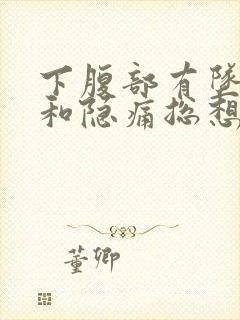 下腹部有坠
和隐痛总想
董卿